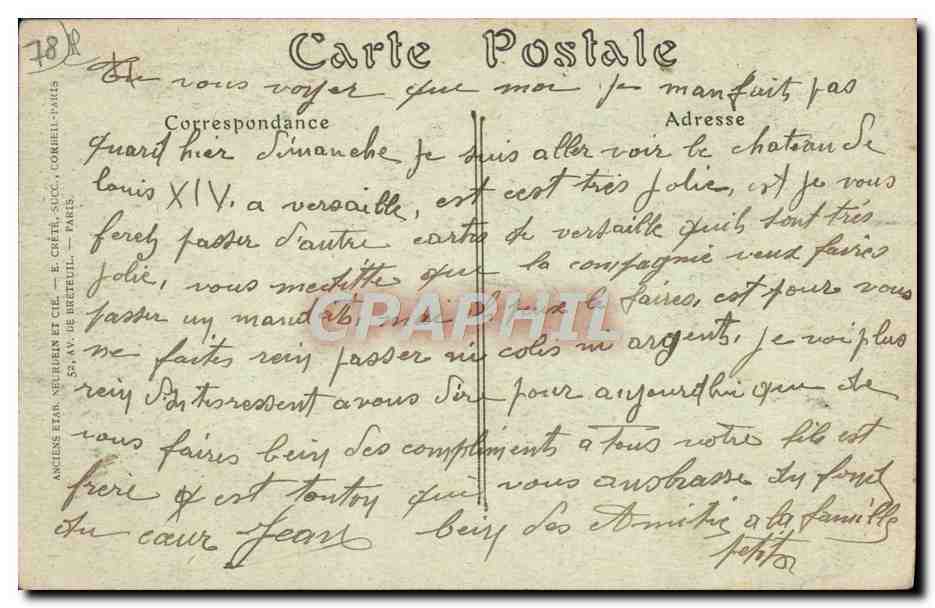 78
Carte Postale
vous voyer que moi je man fait pas
Correspondance
Adresse
quand hier dimanche je suis aller voir le chateau de
louis XIV. a versaille, est cest très jolie, est je vous
fereh passer d'autre cartes de versaille quih sont très
jolie, vous me ditte que la compagnie veux faires
passer un mandat, mai il peux le faires, est pour vous
ne faites rein passer ni colis ni argent, je voi plus
rein d'intéressent a vous dire pour aujourdhui que de
vous faires bein des compliments a tous votre fils est
frère est tonton qui vous ambrasse du fond
du cœur Jean bein des Amitié a la famille
petit
CPAPHIL
ANCIENS ETAB. NEURDEIN ET CIE. — E. CRÉTÉ, SUCC., CORBEIL-PARIS
52, AV. DE BRETEUIL. — PARIS.